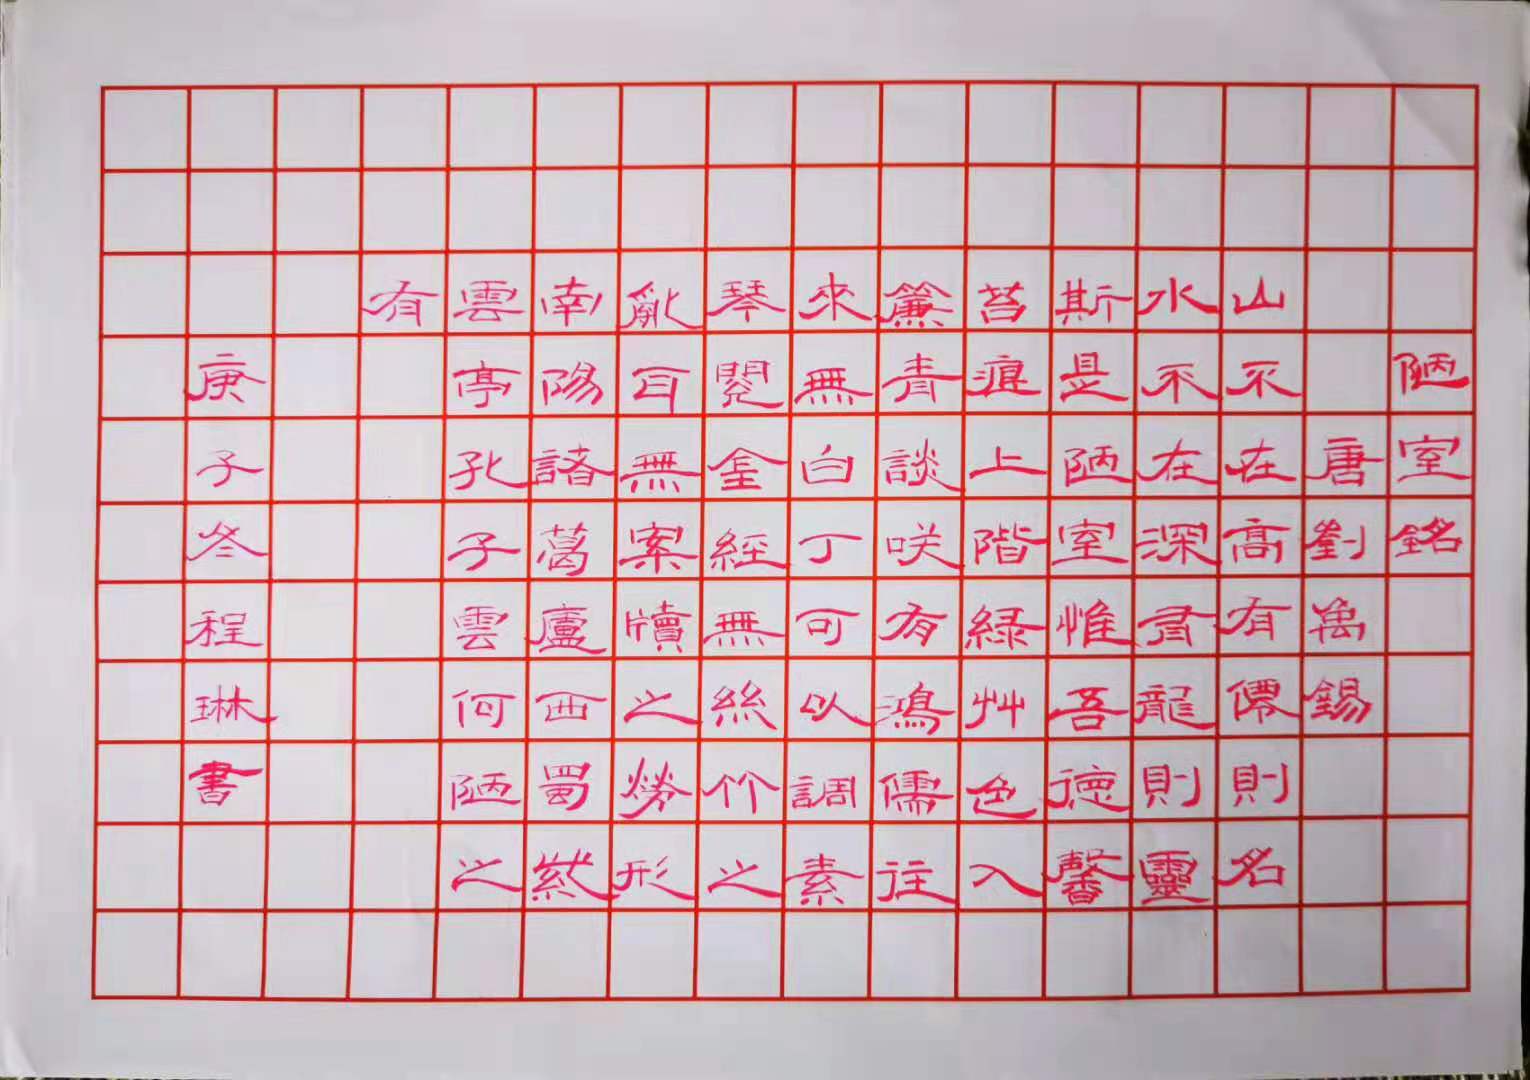 陋室銘
唐劉禹錫
山不在高有僊則名
水不在深有龍則靈
斯是陋室惟吾德馨
苔痕上階緑艸色入
簾青談咲有鴻儒往
來無白丁可以調素
琴閲金經無絲竹之
亂耳無案牘之勞形
南陽諸葛廬西蜀
雲亭孔子雲何陋之
有
庚子冬程琳書